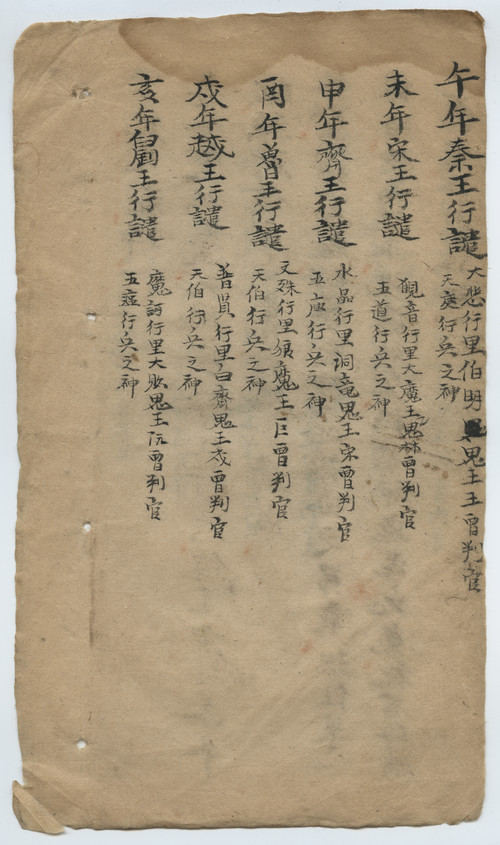 午年秦王行譴
大悲行里伯明鬼王王曹判官
天瘟行兵之神
未年宋王行譴
觀音行里大魔王鬼林曹判官
五道行兵之神
申年齊王行譴
水晶行里洞竜鬼王宋曹判官
五庙行兵之神
酉年魯王行譴
文殊行里狼魔王巨曹判官
天伯行兵之神
戍年越王行譴
普賢行里白齋鬼王戍曹判官
天伯行兵之神
亥年王行譴
魔訶行里大敗鬼王阮曹判官
五瘟行兵之神